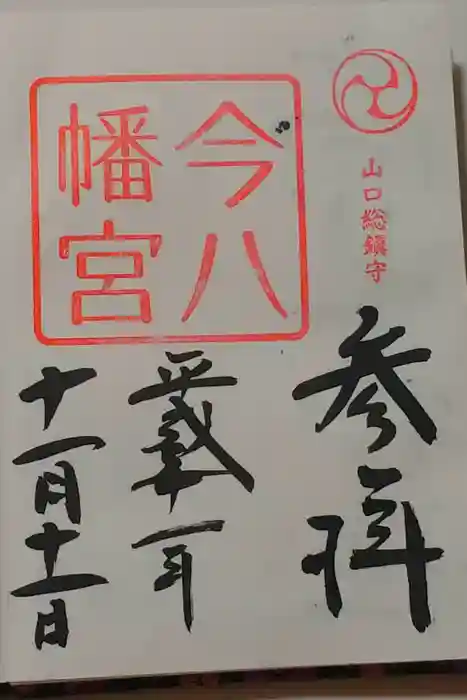 山口総鎮守
参拝
今八
幡宮
平成廿一年
十一月十一日